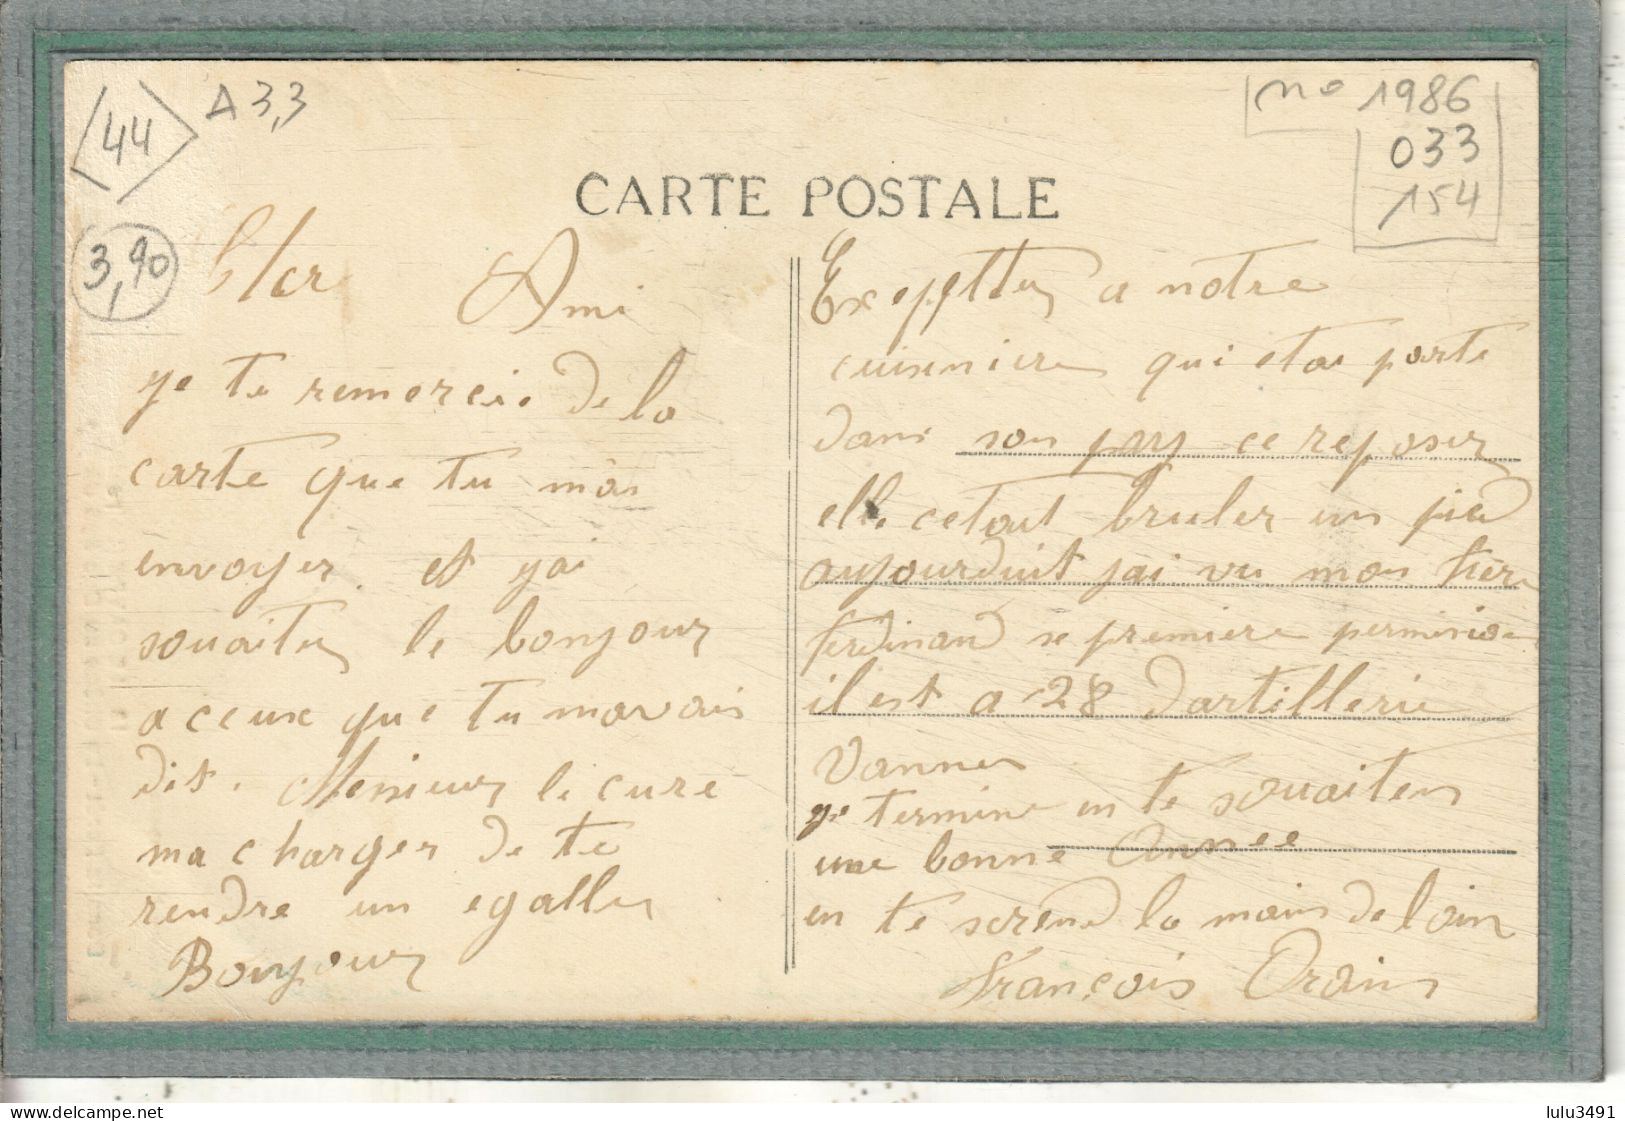 44
A 3,3
no 1986
033
154
CARTE POSTALE
3,90
Cher Ami
je te remercie de la
carte que tu mas
envoyer. et jai
souaiter le bonjour
a ceux que tu mavais
dit. Monsieur le cure
ma charger de te
rendre un egalle
Bonjour
a notre
cuisiniere qui etai parte
dans son pay ce reposer
elle cetait bruler un pied
aujourduit jai vu mon frere
ferdinand se premiere permision
il est a 28 dartillerie
Vannes
je termine en te souaiten
une bonne Annee
en te serend la main de loin
François Orain
delcampe.net
lulu3491